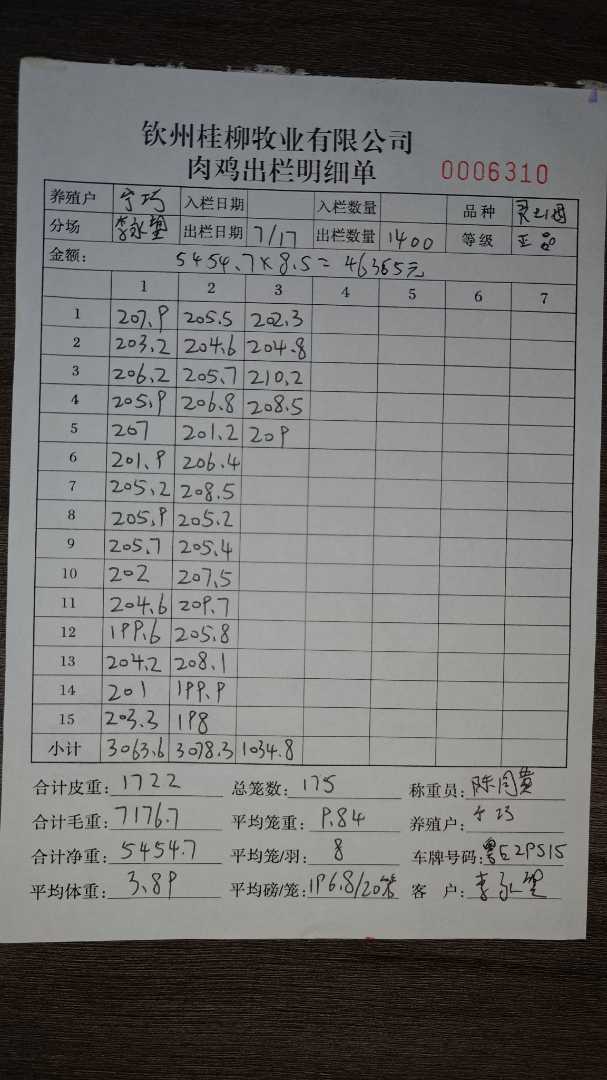 钦州桂柳牧业有限公司
肉鸡出栏明细单 0006310
养殖户 宁巧 入栏日期 入栏数量 品种
分场 李永望 出栏日期 7/17 出栏数量 1400 等级 正品
金额: 5454.7×8.5=46365元
1 2 3 4 5 6 7
1 207.9 205.5 202.3
2 203.2 204.6 204.8
3 206.2 205.7 210.2
4 205.9 206.8 208.5
5 207 201.2 209
6 201.9 206.4
7 205.2 208.5
8 205.9 205.2
9 205.7 205.4
10 202 207.5
11 204.6 209.7
12 199.6 205.8
13 204.2 208.1
14 201 199.9
15 203.3 198
小计 3063.6 3078.3 1034.8
合计皮重: 1722 总笼数: 175 称重员:
合计毛重: 7176.7 平均笼重: 9.84 养殖户: 宁巧
合计净重: 5454.7 平均笼/羽: 8 车牌号码:
平均体重: 3.89 平均磅/笼: 196.8/20笼 客户: 李永望